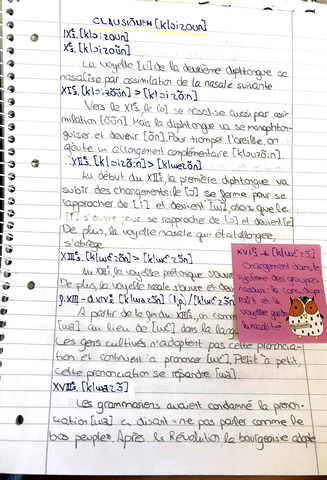 CLAUSIONEM [klɔizoun]
IXᵉs. [klɔizoun]
Xᵉs. [klɔizoũn]
La voyelle [u] de la deuxième diphtongue se
nasalise par assimilation de la nasale suivante
XIᵉs. [klɔizõũn] > [klɔizõ:n]
Vers le XIᵉs, le [o] se nasalise aussi par assi
milation [õũn]. Mais la diphtongue va se monophton-
guiser et devenir [õn]. Pour tromper l'oreille, on
ajoute un allongement complémentaire
XIIᵉs. [klɔizõ:n] > [kluezõn]
Au début du XIIᵉs, la première diphtongue va
subir des changements: le [ɔ] se ferme pour se
rapprocher de [i] et devient [u] alors que le
[i] s'ouvre pour se rapprocher de [ɔ] et devient [e]
De plus, la voyelle nasale qui était allongée,
s'abrège
XIIIᵉs.
Au XIIIᵉ, la voyelle prétonique s'ouvre
De plus, la voyelle nasale s'ouvre et devi
A partir de la fin du XIIIᵉs, on comm
[wa] au lieu de [wɛ] dans la langu
Les gens cultivés n'adoptent pas cette prononcia-
tion et continuent à prononcer [wɛ]. Petit à petit,
cette prononciation se répandre [wa]
XVIIᵉs. [klwazɔ̃]
Les grammairiens avaient condamné la pronon-
ciation [wa] en disant "ne pas parler comme le
bas peuple". Après la Révolution la bourgeoisie adopte
XVIᵉs → [klwɛzɔ̃]
Changement dans le
système des groupes
nasaux: la cons. dispa-
raît et la
voyelle garde
la nasalité